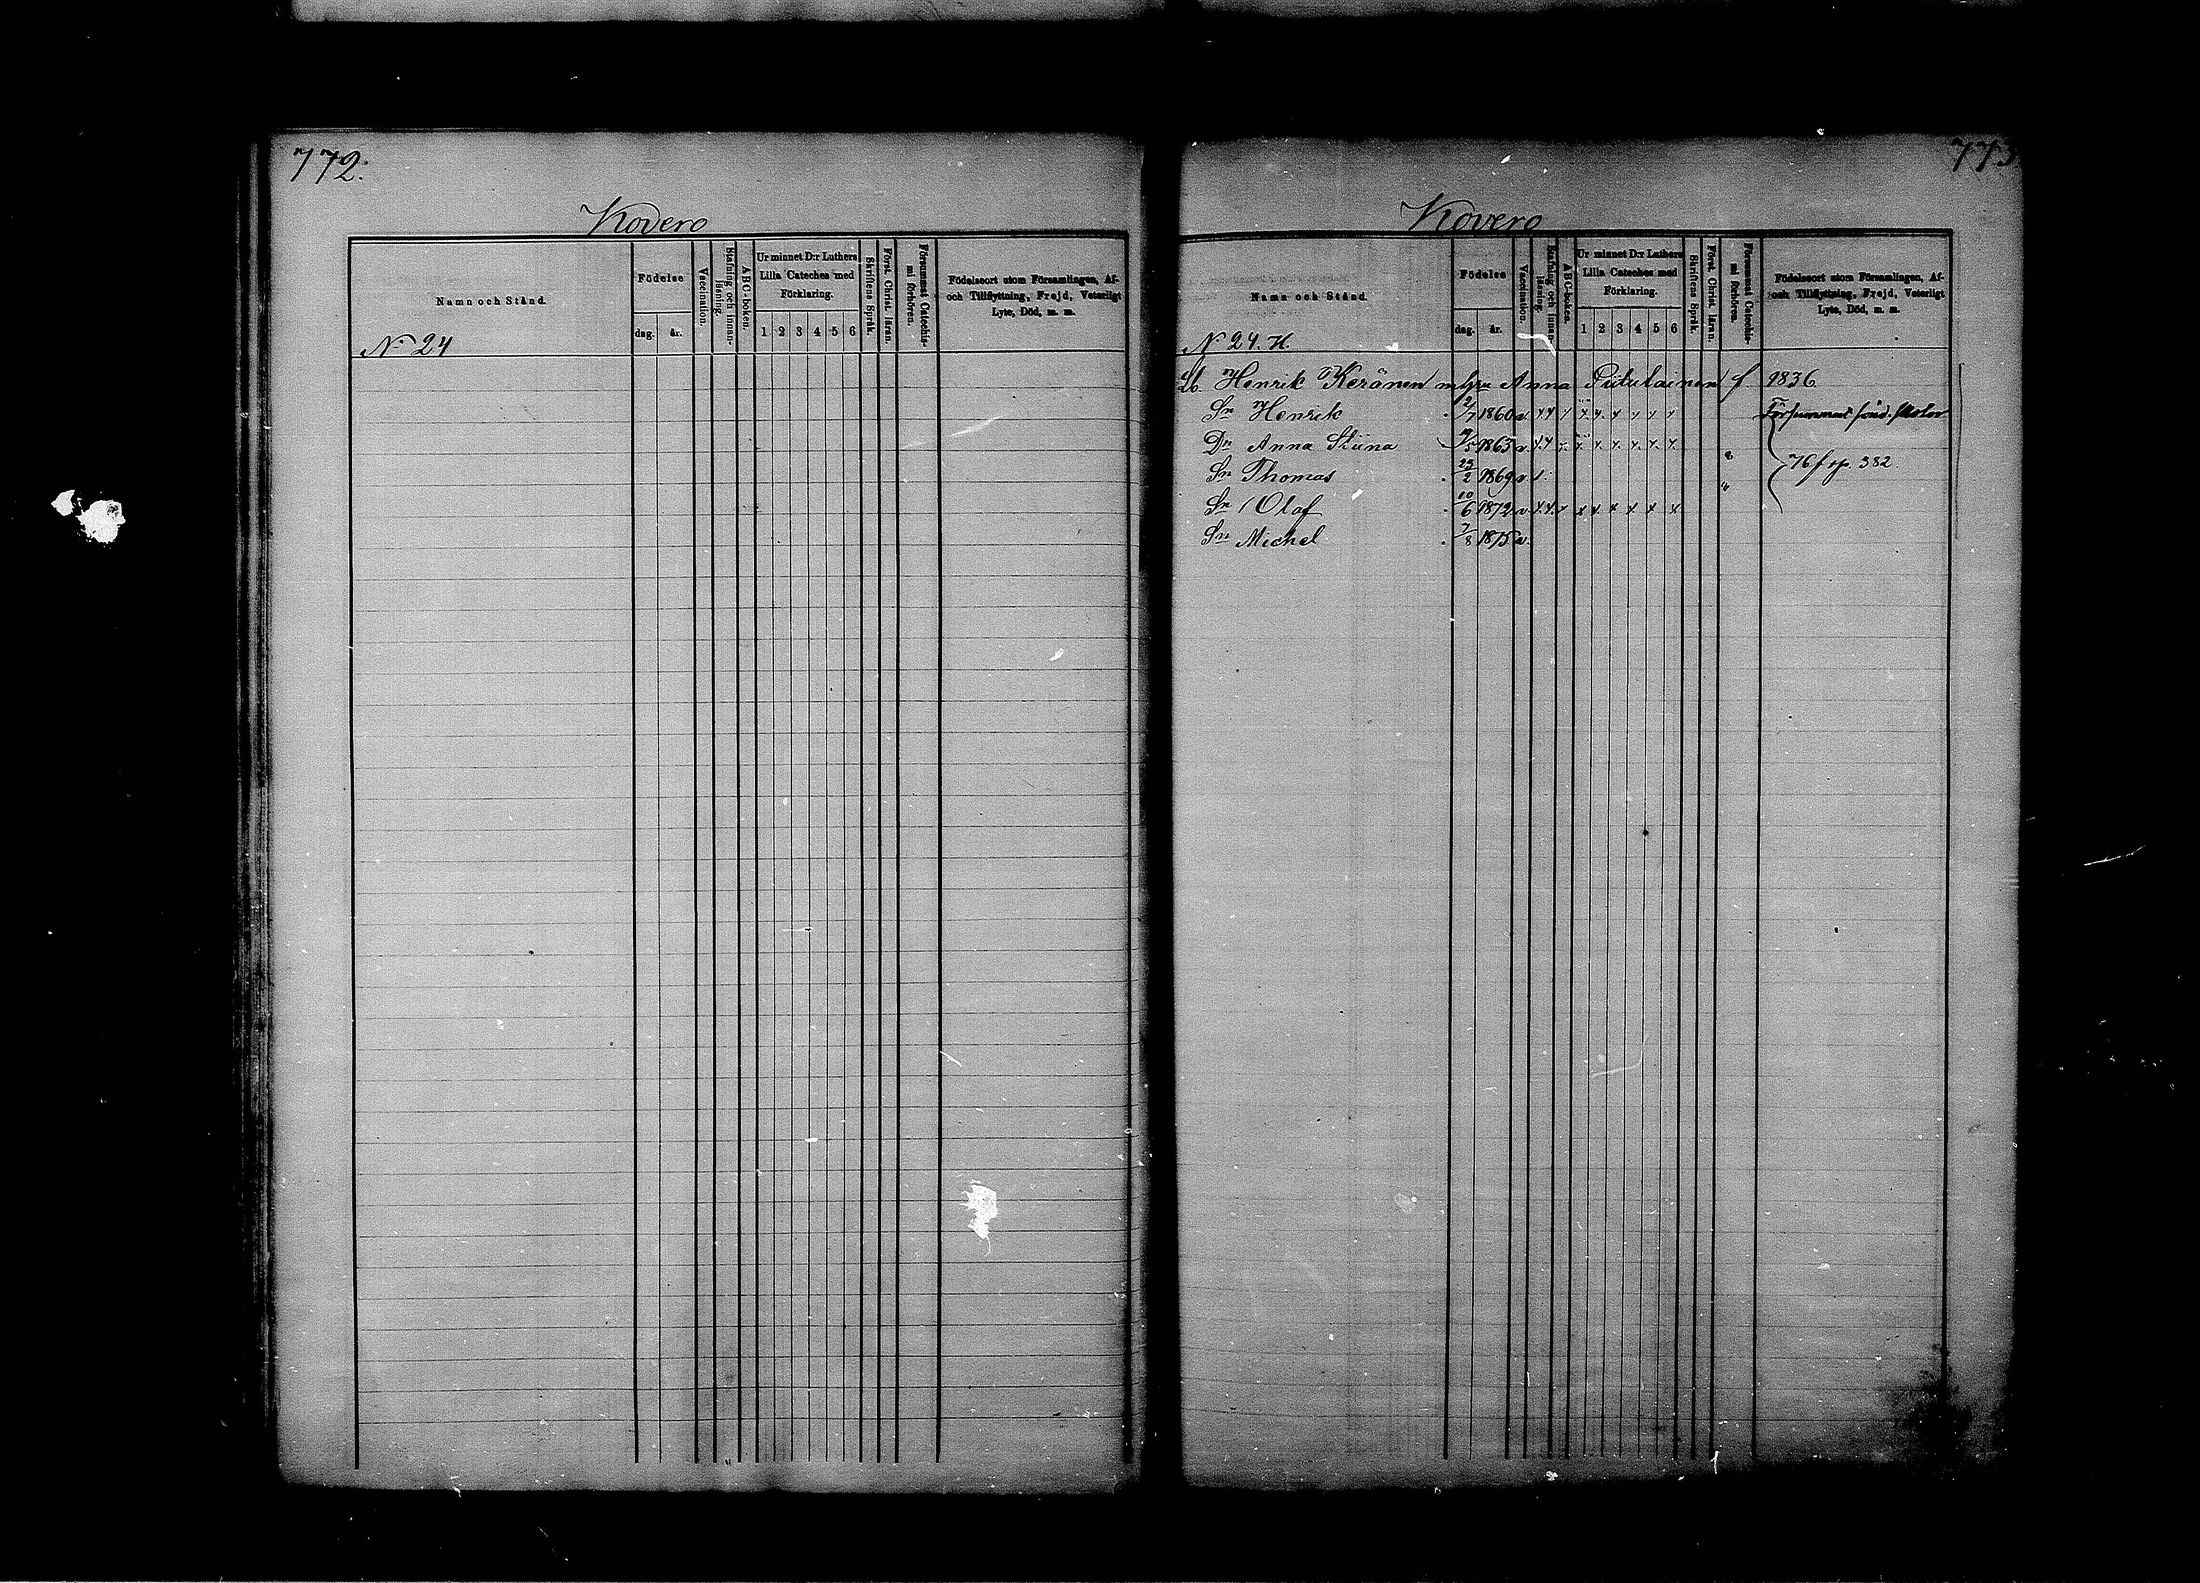 772.
Kovero
Namn och Stånd.
Födelse
dag. år.
Vaccination.
Stafning och innanläsning.
ABC-boken.
Ur minnet D:r Luthers
Lilla Cateches med
Förklaring.
1 2 3 4 5 6
Skriftens Språk.
Först. Christ. läran.
Försummat Catechismi förhören.
Födelseort utom Församlingen, Af-
och Tillflyttning, Frejd, Veterligt
Lyte, Död, m. m.
N 24
773
Kovero
Namn och Stånd.
Födelse
dag. år.
Vaccination.
Stafning och innanläsning.
ABC-boken.
Ur minnet D:r Luthers
Lilla Cateches med
Förklaring.
1 2 3 4 5 6
Skriftens Språk.
Först. Christ. läran.
Försummat Catechismi förhören.
Födelseort utom Församlingen, Af-
och Tillflyttning, Frejd, Veterligt
Lyte, Död, m. m.
N 24. H.
Henrik Keränen m hru Anna Piitulainen f 1836
Sn Henrik 2/7 1860 v. Försummat sönd. skolor
Dr Anna Stiina 1863 v.
Sn Thomas 1869 v. 76 f. p. 382.
Sn Olof 10/6 1872 v.
Sn Michel 7/8 1875 v.